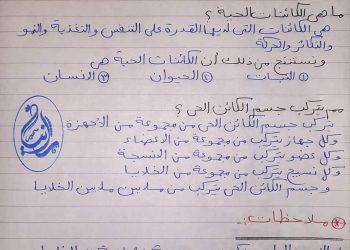 ما هى الكائنات الحية ؟
هى الكائنات التى لديها القدرة على التنفس والتغذية والنمو
والتكاثر والحركة
ونستنتج من ذلك أن الكائنات الحية هى
① النبات ② الحيوان ③ الانسان
مم يتركب جسم الكائن الحى ؟
يتركب جسم الكائن الحى من مجموعة من الاجهزة
وكل جهاز يتركب من مجموعة من الاعضاء
وكل عضو يتركب من مجموعة من النسجة
وكل نسيج يتركب من مجموعة من الخلايا
وجسم الكائن الحى يتركب من ملايين ملايين الخلايا
ملاحظات :-